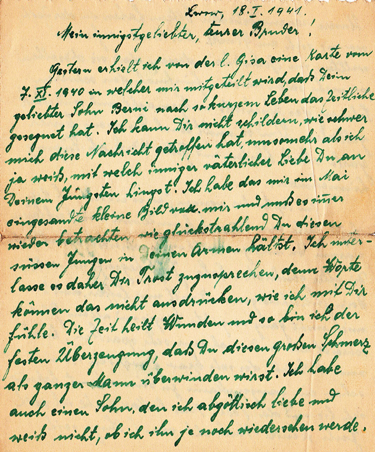 Lwow, 18.I.1941.
Mein innigstgeliebter, teurer Bruder!
Gestern erhielt ich von der l. Gisa eine Karte vom
7.XI.1940 in welcher mir mitgeteilt wird, daß Dein
geliebter Sohn Berni nach so kurzem Leben das Zeitliche
gesegnet hat. Ich kann Dir nicht schildern, wie schwer
mich diese Nachricht getroffen hat, umsomehr, als ich
ja weiß, mit welch inniger väterlicher Liebe Du an
Deinem Jüngsten hingst. Ich habe das mir im Mai
eingesandte kleine Bild vor mir und muß es immer
wieder betrachten wie glückstrahlend Du diesen
süssen Jungen in Deinen Armen hältst. Ich unter-
lasse es daher Dir Trost zuzusprechen, denn Worte
können das nicht ausdrücken, wie ich mit Dir
fühle. Die Zeit heilt Wunden und so bin ich der
festen Überzeugung, daß Du diesen großen Schmerz
als ganzer Mann überwinden wirst. Ich habe
auch einen Sohn, den ich abgöttisch liebe und
weiß nicht, ob ich ihn je noch wiedersehen werde.